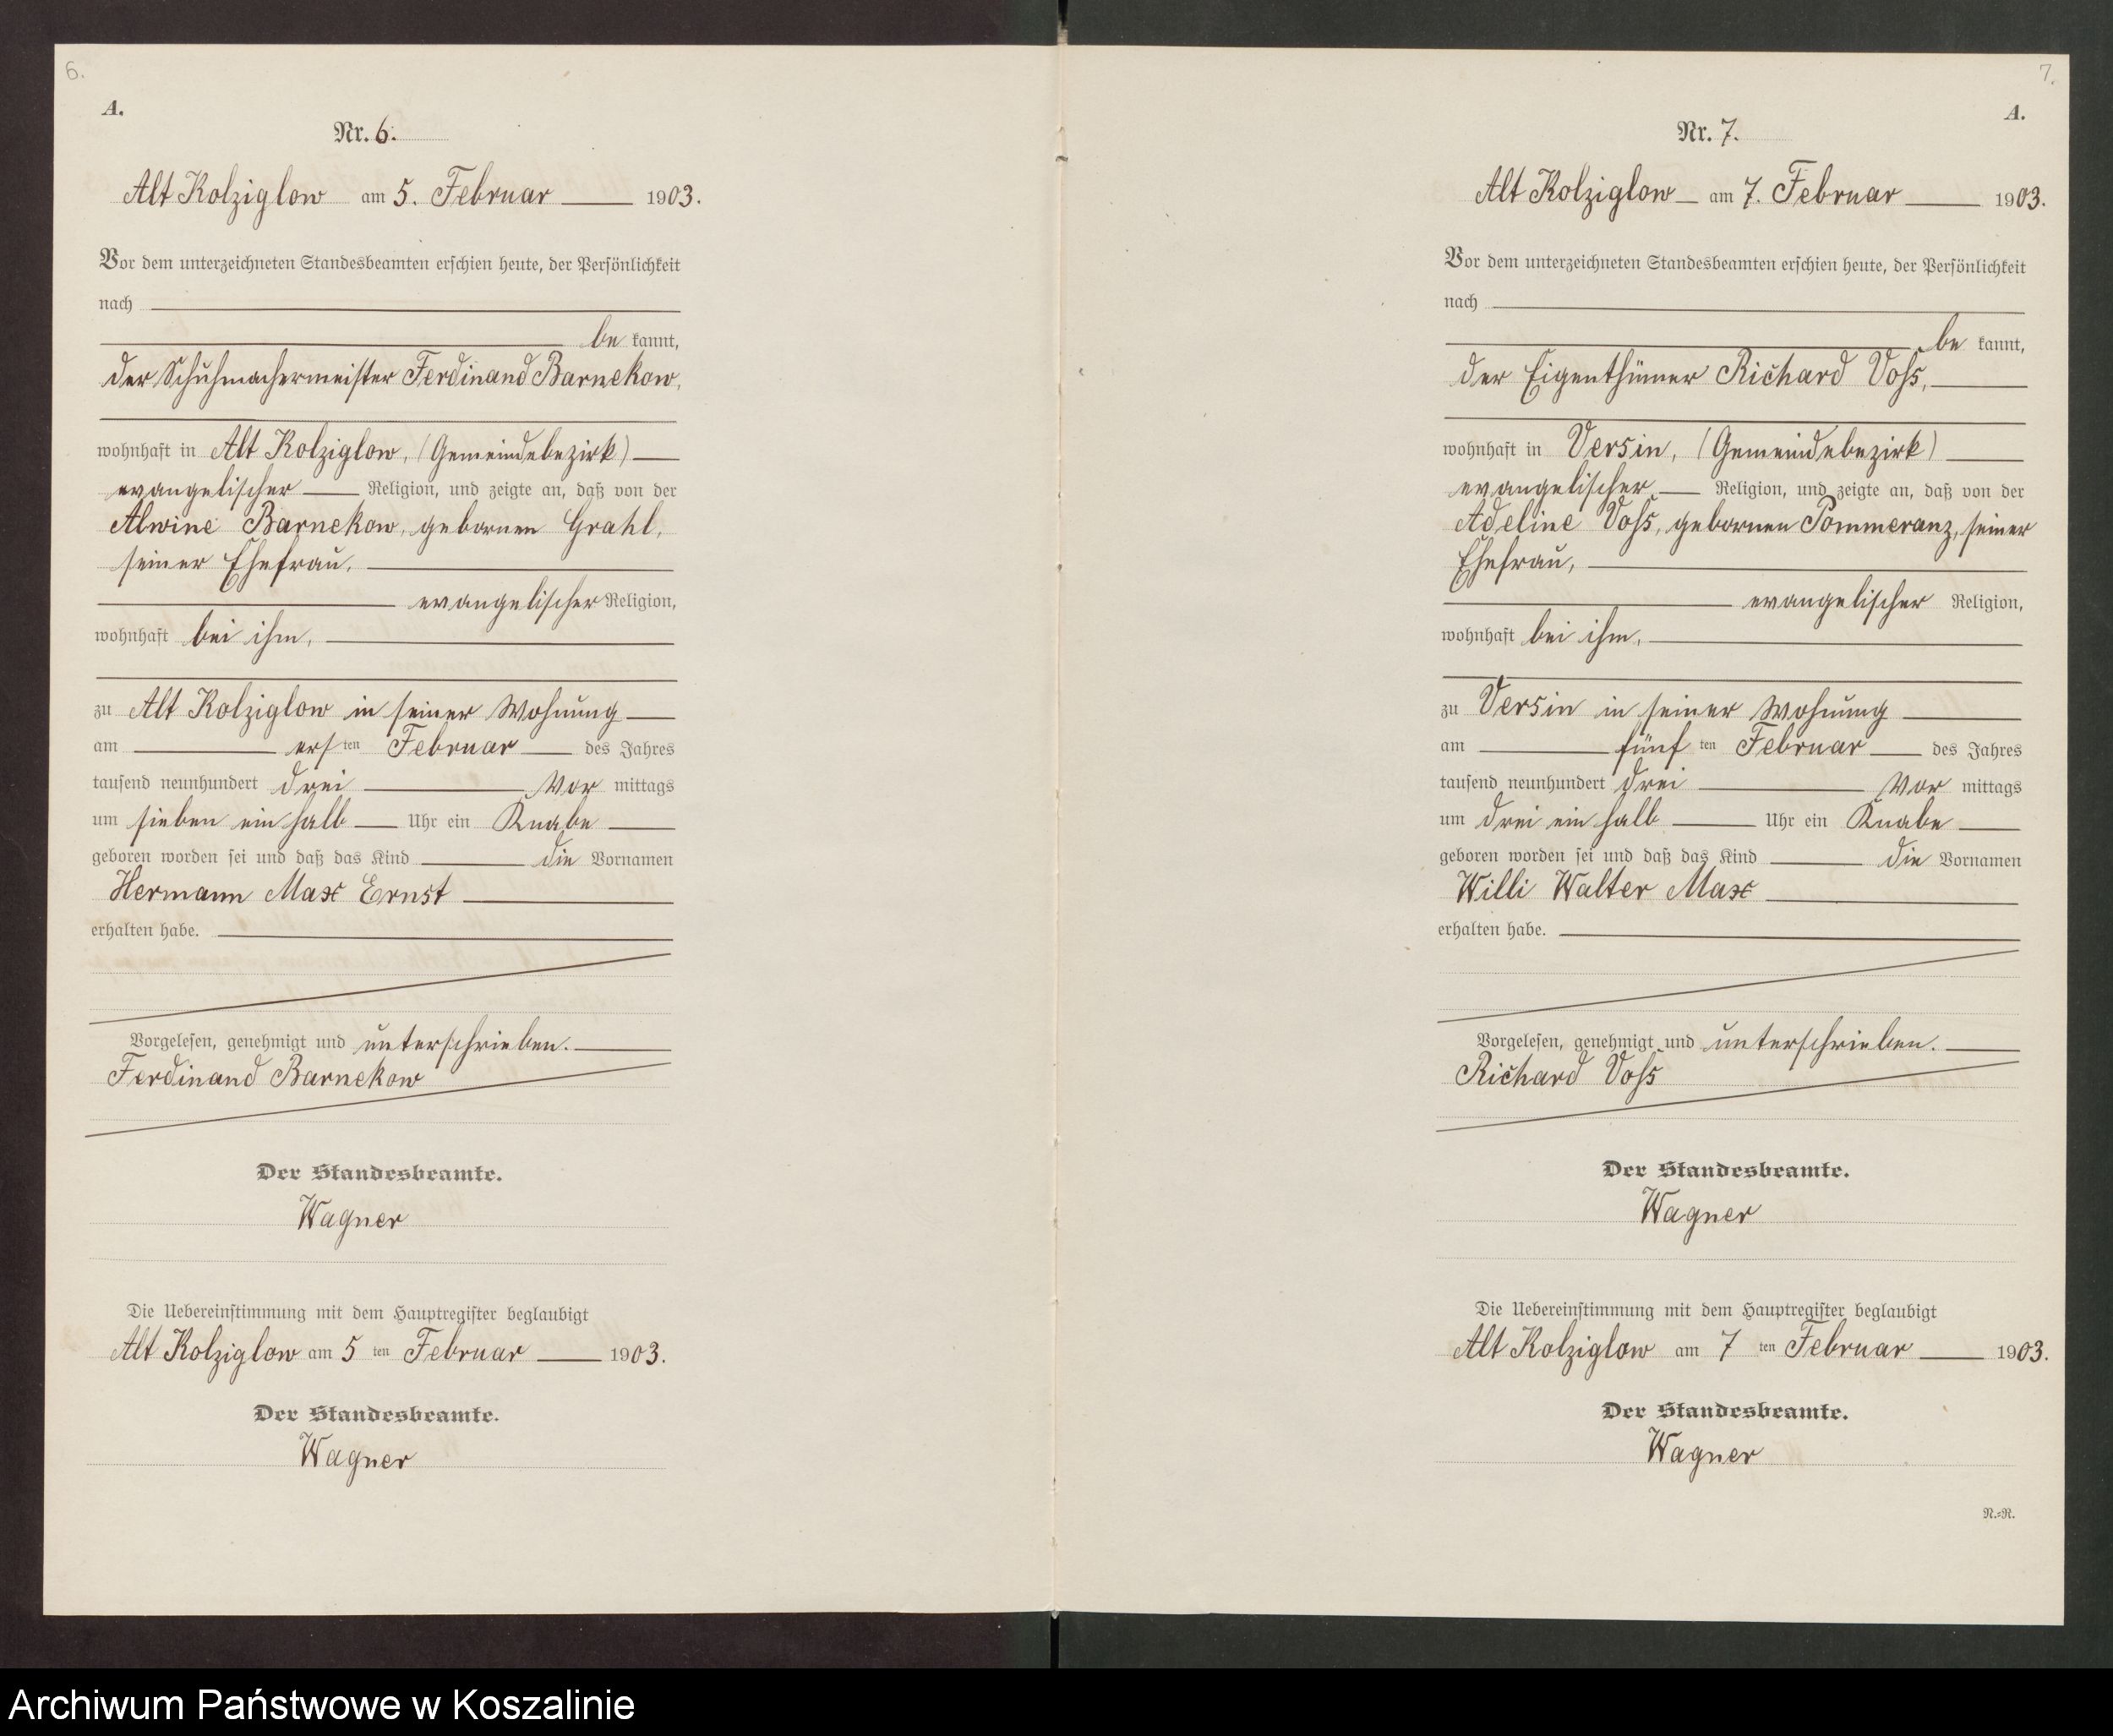 6.
A.
Nr. 6.
Alt Kolziglow am 5. Februar 1903.
Vor dem unterzeichneten Standesbeamten erschien heute, der Persönlichkeit
nach
be kannt,
der Schuhmachermeister Ferdinand Barnekow,
wohnhaft in Alt Kolziglow, (Gemeindebezirk)
evangelischer Religion, und zeigte an, daß von der
Alwine Barnekow, gebornen Grahl,
seiner Ehefrau,
evangelischer Religion,
wohnhaft bei ihm,
zu Alt Kolziglow in seiner Wohnung
am ersten Februar des Jahres
tausend neunhundert drei Vor mittags
um sieben ein halb Uhr ein Knabe
geboren worden sei und daß das Kind die Vornamen
Hermann Max Ernst
erhalten habe.
Vorgelesen, genehmigt und unterschrieben.
Ferdinand Barnekow
Der Standesbeamte.
Wagner
Die Uebereinstimmung mit dem Hauptregister beglaubigt
Alt Kolziglow am 5 ten Februar 1903.
Der Standesbeamte.
Wagner
7.
A.
Nr. 7.
Alt Kolziglow am 7. Februar 1903.
Vor dem unterzeichneten Standesbeamten erschien heute, der Persönlichkeit
nach
be kannt,
der Eigenthümer Richard Voß,
wohnhaft in Versin, (Gemeindebezirk)
evangelischer Religion, und zeigte an, daß von der
Adeline Voß, gebornen Pommeranz, seiner
Ehefrau,
evangelischer Religion,
wohnhaft bei ihm,
zu Versin in seiner Wohnung
am fünf ten Februar des Jahres
tausend neunhundert drei Vor mittags
um drei ein halb Uhr ein Knabe
geboren worden sei und daß das Kind die Vornamen
Willi Walter Max
erhalten habe.
Vorgelesen, genehmigt und unterschrieben.
Richard Voß
Der Standesbeamte.
Wagner
Die Uebereinstimmung mit dem Hauptregister beglaubigt
Alt Kolziglow am 7 ten Februar 1903.
Der Standesbeamte.
Wagner
N.=R.
Archiwum Państwowe w Koszalinie